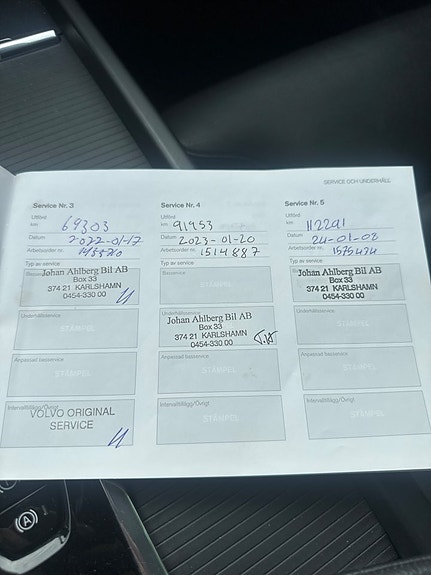 SERVICE OCH UNDERHÅLL
Service Nr. 3
Utförd
km 69303
Datum 2022-01-17
Arbetsorder nr.
Typ av service
Johan Ahlberg Bil AB
Box 33
374 21 KARLSHAMN
0454-330 00
Underhållsservice
STÄMPEL
Anpassad basservice
STÄMPEL
Intervalltillägg/Övrigt
VOLVO ORIGINAL
SERVICE
Service Nr. 4
Utförd
km 91953
Datum 2023-01-20
Arbetsorder nr. 1514887
Typ av service
Basservice
STÄMPEL
Underhållsservice
Johan Ahlberg Bil AB
Box 33
374 21 KARLSHAMN
0454-330 00
Anpassad basservice
STÄMPEL
Intervalltillägg/Övrigt
STÄMPEL
Service Nr. 5
Utförd
km 112291
Datum 24-01-08
Arbetsorder nr. 1575434
Typ av service
Johan Ahlberg Bil AB
Box 33
374 21 KARLSHAMN
0454-330 00
Underhållsservice
STÄMPEL
Anpassad basservice
STÄMPEL
Intervalltillägg/Övrigt
STÄMPEL
A